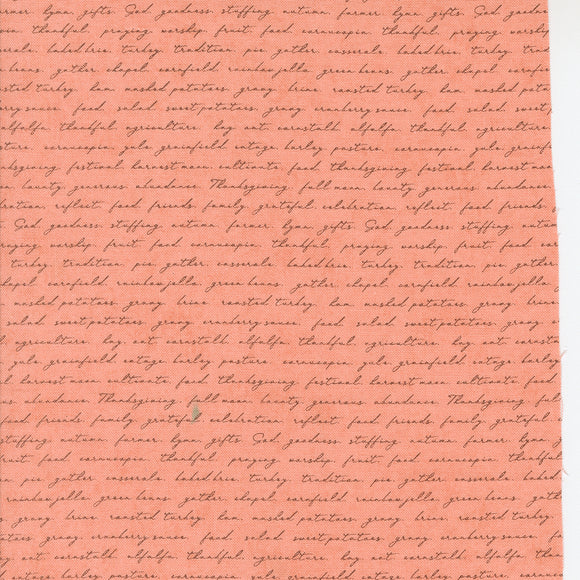 farmer. gifts. God. goodness. stuffing. autumn. farmer. gifts. God. goodness
pie. thankful. praying. worship. fruit. food. cornucopia. thankful. praying. worship
baked brie. turkey. tradition. pie. gather. casserole. baked brie. turkey.
beans. gather. chapel. cornfield. rainbow jello. green beans. gather. chapel.
roasted turkey. ham. mashed potatoes. gravy. brine. roasted turkey. ham. mashed
cranberry sauce. food. salad. sweet potatoes. gravy. cranberry sauce. food. salad. sweet
alfalfa. thankful. agriculture. hay. oat. cornstalk. alfalfa. thankful. agriculture
pasture. cornucopia. yule. grainfield. barley. pasture. cornucopia. yule.
thanksgiving. festival. harvest moon. cultivate. food. thanksgiving. festival. harvest
bounty. generous. abundance. Thanksgiving. full moon. bounty. generous. abundance
celebration. reflect. food. friends. family. grateful. celebration. reflect. food. friends.
God. goodness. stuffing. autumn. farmer. gifts. God. goodness. stuffing.
praying. worship. fruit. food. cornucopia. thankful. praying. worship. fruit. food.
turkey. tradition. pie. gather. casserole. baked brie. turkey. tradition. pie. gather
chapel. cornfield. rainbow jello. green beans. gather. chapel. cornfield. rainbow jello.
mashed potatoes. gravy. brine. roasted turkey. ham. mashed potatoes. gravy. brine.
salad. sweet potatoes. gravy. cranberry sauce. food. salad. sweet potatoes. gravy.
agriculture. hay. oat. cornstalk. alfalfa. thankful. agriculture. hay. oat.
yule. grainfield. barley. pasture. cornucopia. yule. grainfield. barley
harvest moon. cultivate. food. thanksgiving. festival. harvest moon. cultivate. food
abundance. Thanksgiving. full moon. bounty. generous. abundance. Thanksgiving.
food. friends. family. grateful. celebration. reflect. food. friends. family. grateful
stuffing. autumn. farmer. gifts. God. goodness. stuffing. autumn. farmer.
worship. fruit. food. cornucopia. thankful. praying. worship. fruit. food. cornucopia. thankful
pie. gather. casserole. baked brie. turkey. tradition. pie. gather. casserole. baked
rainbow jello. green beans. gather. chapel. cornfield. rainbow jello. green beans.
gravy. brine. roasted turkey. ham. mashed potatoes. gravy. brine. roasted turkey.
potatoes. gravy. cranberry sauce. food. salad. sweet potatoes. gravy. cranberry sauce.
hay. oat. cornstalk. alfalfa. thankful. agriculture. hay. oat. cornstalk. alfalfa.
barley. pasture. cornucopia. yule. grainfield. barley. pasture.